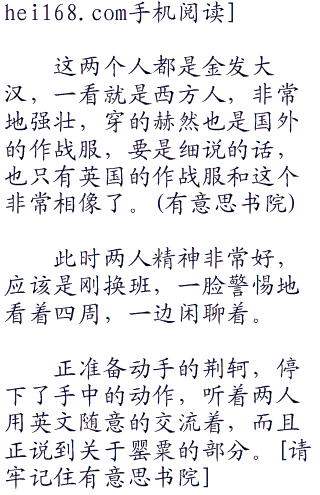 hei168.com手机阅读]
这两个人都是金发大
汉，一看就是西方人，非常
地强壮，穿的赫然也是国外
的作战服，要是细说的话，
也只有英国的作战服和这个
非常相像了。(有意思书院)
此时两人精神非常好，
应该是刚换班，一脸警惕地
看着四周，一边闲聊着。
正准备动手的荆轲，停
下了手中的动作，听着两人
用英文随意的交流着，而且
正说到关于罂粟的部分。[请
牢记住有意思书院]